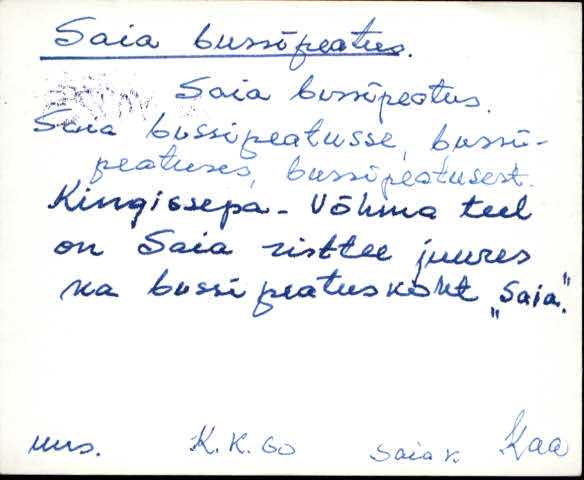 Saia bussipeatus.
Saia bussipeatus.
Saia bussipeatusse, bussi-
peatuses, bussipeatusest.
Kingissepa - Võhma teel
on Saia risttee juures
ka bussi peatuskoht „Saia."
uus. K.K. GO Saia k. Kaa